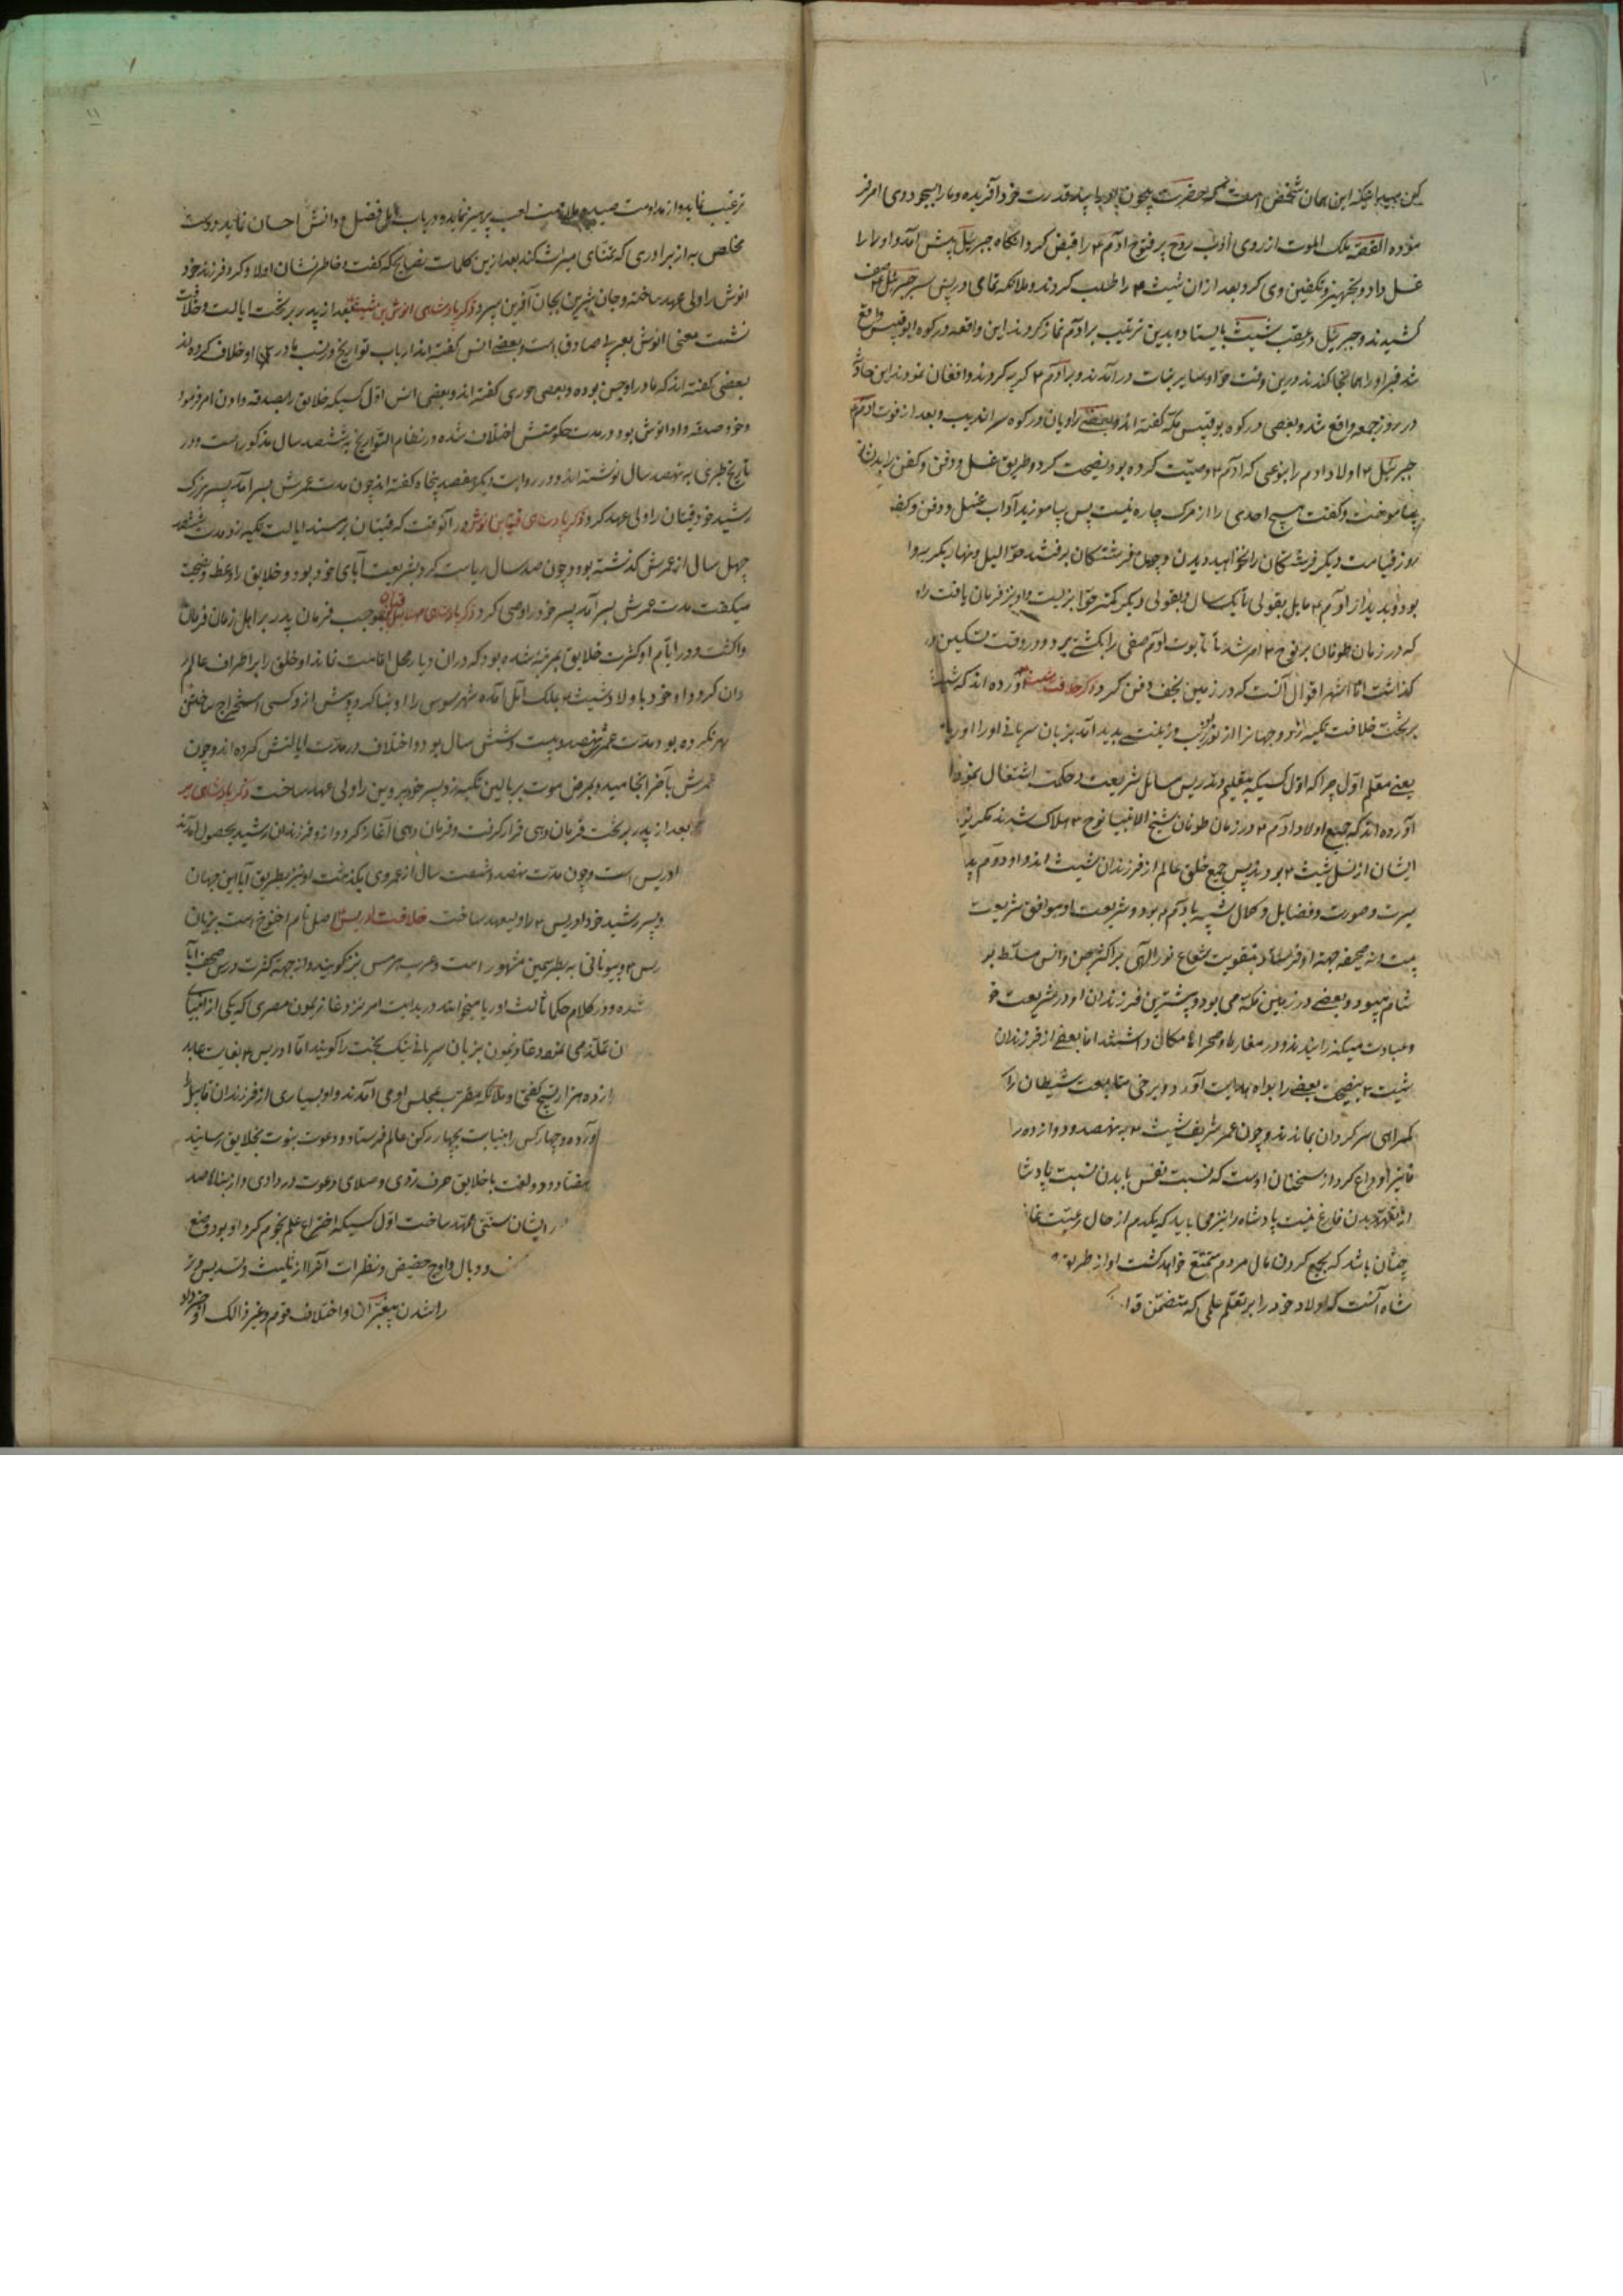 ۱۰
کین مبین بلکه این همان شخص است که حضرت بیچون او را بید قدرت خود آفریده و ما را بسجود وی امر فر
موده القصه ملک الموت از روی ادب روح پر فتوح آدم ۴ را قبض کرد آنگاه جبرئیل پیش آمد و او را
غسل داد و تجهیز و تکفین وی کرد بعد از ان شیث ۴ را طلب کردند و ملائکه تمامی در پس سر جبرئیل ۴ صف
کشیدند و جبرئیل در عقب شیث بایستاد و بدین ترتیب بر آدم نماز کردند این واقعه در کوه ابوقبیس واقع
شد قبر او را همانجا کندند در این وقت حوا و سایر بنات در آمدند و بر آدم ۴ گریه کردند و افغان نمودند این حادثه
در روز جمعه واقع شد و بعضی در کوه بوقبیس مکه گفته اند و بعضی راویان در کوه سراندیب و بعد از فوت آدم ۴
جبرئیل ۴ اولاد آدم را بنوعی که آدم ۴ وصیت کرده بود نصیحت کرد و طریق غسل و دفن و کفن را بدیشان
بیاموخت و گفت هیچ احدی را از مرک چاره نیست پس بیاموزید آداب غسل و دفن و کفن
روز قیامت دیگر فرشتگان را نخواهید دیدن و چون فرشتگان برفتند حوا لیل و نهار بگریه و ا
بود و بعد از آدم ۴ بقولی یک سال و بقولی دیگر کمتر حوا بزیست و او نیز فرمان یافت راو
که در زمان طوفان بر نوح ۴ امر شد تا تابوت آدم صفی را بکشتی برد و در وقت تسکین در
گذاشت اما اشهر اقوال آنست که در زمین نجف دفن کرد ذکر خلافت شیث ۴ آورده اند که شیث
بر تخت خلافت تکیه زد و جهان را از نور زیب و زینت پدید آمد بزبان سریانی او را اوریا
یعنی معلم اول چرا که اول کسیکه بتعلیم و تدریس مسائل شریعت و حکمت اشتغال نمود او
آورده اند که جمیع اولاد آدم ۴ در زمان طوفان شیخ الانبیا نوح ۴ هلاک شدند مگر نوح
ایشان از نسل شیث ۴ بودند پس جمیع خلق عالم از فرزندان شیث اند و او در م
سیرت و صورت و فضایل و کمال شبیه بآدم ۴ بود و شریعت او موافق شریعت
بیست و نه صحیفه جهة او فرستاد بتقویت شعاع نور الهی بر اکثر جن و انس مسلط بو
شام میبود و بعضی در زمین مکه می بود و بیشترین فرزندان او در شریعت خو
و عبادت میکذرانیدند و در مغارها و صحراها مکان داشتند اما بعضی از فرزندان
شیث ۴ بنصیحت بعضی را براه هدایت آورد و برخی متابعت شیطان را
گمراهی سرگردان بماندند و چون عمر شریف شیث ۴ به نهصد و دوازده ر
فانی را وداع کرد از سخنان اوست که نسبت نفس با بدن نسبت پادشا
از تعهد بدن فارغ نیست پادشاه را نیز می باید که یکدم از حال رعیت غا
چنان باشد که بجمع کردن مال مردم متمتع خواهد گشت او از طریق
شاه آنست که اولاد خود را بر تعلم علمی که متضمن فوا
۱۱
ترغیب نماید و از مداومت صید و ملازمت لعب پرهیز نماید و در باب اهل فضل و دانش احسان نماید دوست
مخلص به از برادری که تمنای میراث کند بعد ازین کلمات نصایح که گفت و خاطر نشان اولاد کرد فرزند خود
انوش را ولی عهد ساخته و جان شیرین بجان آفرین سپرد ذکر پادشاهی انوش بن شیث بعد از پدر بر تخت ایالت و خلافت
نشست معنی انوش بعبری صادق است و بعضی انس گفته اند ارباب تواریخ در نسب مادر او خلاف کرده اند
بعضی گفته اند که مادر او جن بوده و بعضی حوری گفته اند و بعضی انس اول کسیکه خلایق را بصدقه دادن امر فرمود
و خود صدقه داد انوش بود و در مدت حکومتش اختلاف شده در نظام التواریخ ششصد سال مذکور است و در
تاریخ طبری نه نهصد سال نوشته اند و در روایت دیگر هفصد پنجاه گفته اند چون مدت عمرش بسر آمد پسر بزرگ
رشید خود قینان را ولی عهد کرد ذکر پادشاهی قینان بن انوش در آنوقت که قینان بر مسند ایالت تکیه زد مدت ششصد
چهل سال از عمرش گذشته بود و چون صد سال ریاست کرد بشریعت آبای خود بود و خلایق را وعظ و نصیحت
میگفت مدت عمرش بسر آمد پسر خود را وصی کرد ذکر پادشاهی مهلائیل بن قینان بموجب فرمان پدر بر اهل زمان فرمان
واکشت و در ایام او کثرت خلایق بمرتبه شده بود که در ان دیار محل اقامت نماند او خلق را بر اطراف عالم
دان کرد و او خود با اولاد شیث ۴ بملک بابل آمده شهر سوس را او بنا کرد و پیش از و کسی استخراج ساختن
شهر نکرده بود مدت عمرش نهصد و بیست و شش سال بود و اختلاف در مدت ایالتش کرده اند و چون
عمرش بآخر انجامید و بمرض موت بر بالین تکیه زد پسر خود بیرد بن را ولی عهد ساخت ذکر پادشاهی بر
بعد از پدر بر تخت فرمان دهی قرار گرفت و فرمان دهی آغاز کرد و از و فرزندان رشید بحصول آمدند
ادریس است و چون مدت نهصد و شصت سال از عمر وی بگذشت او نیز بطریق آبا این جهان
و پسر رشید خود ادریس ۴ را ولیعهد ساخت خلافت ادریس ۴ اصل نام اخنوخ است بزبان
ریس ۴ و بیونانی به بطرسمین مشهور است و عرب هرمس نیز گویند و از جهة کثرت درس صحف آبا
شده و در کلام حکما ثالث اوریا میخوانند در بدایت امر نزد غاثریمون مصری که یکی از انبیای
ان تلمذ می نمود و غاثریمون بزبان سریانی نیک بخت را گویند اما ادریس ۴ بغایت عابد
از ده هزار تسبیح گفتی و ملائکه مقرب بمجلس او می آمدند و او بسیاری از فرزندان قابیل را
آورده و چهار کس را بنیابت بچهار رکن عالم فرستاد و دعوت بنبوت بخلایق رسانید
هفتاد و دو لغت با خلایق حرف زدی و صلای دعوت در دادی و از بناها صد
ر ایشان سنتی ممهد ساخت اول کسیکه اختراع علم نجوم کرد او بود و وضع
و وبال و اوج حضیض و نظرات آنرا از تثلیث و تسدیس و تر
را شدن پیغمبر آن و اختلاف قوم و غیر ذالک او خبر داد